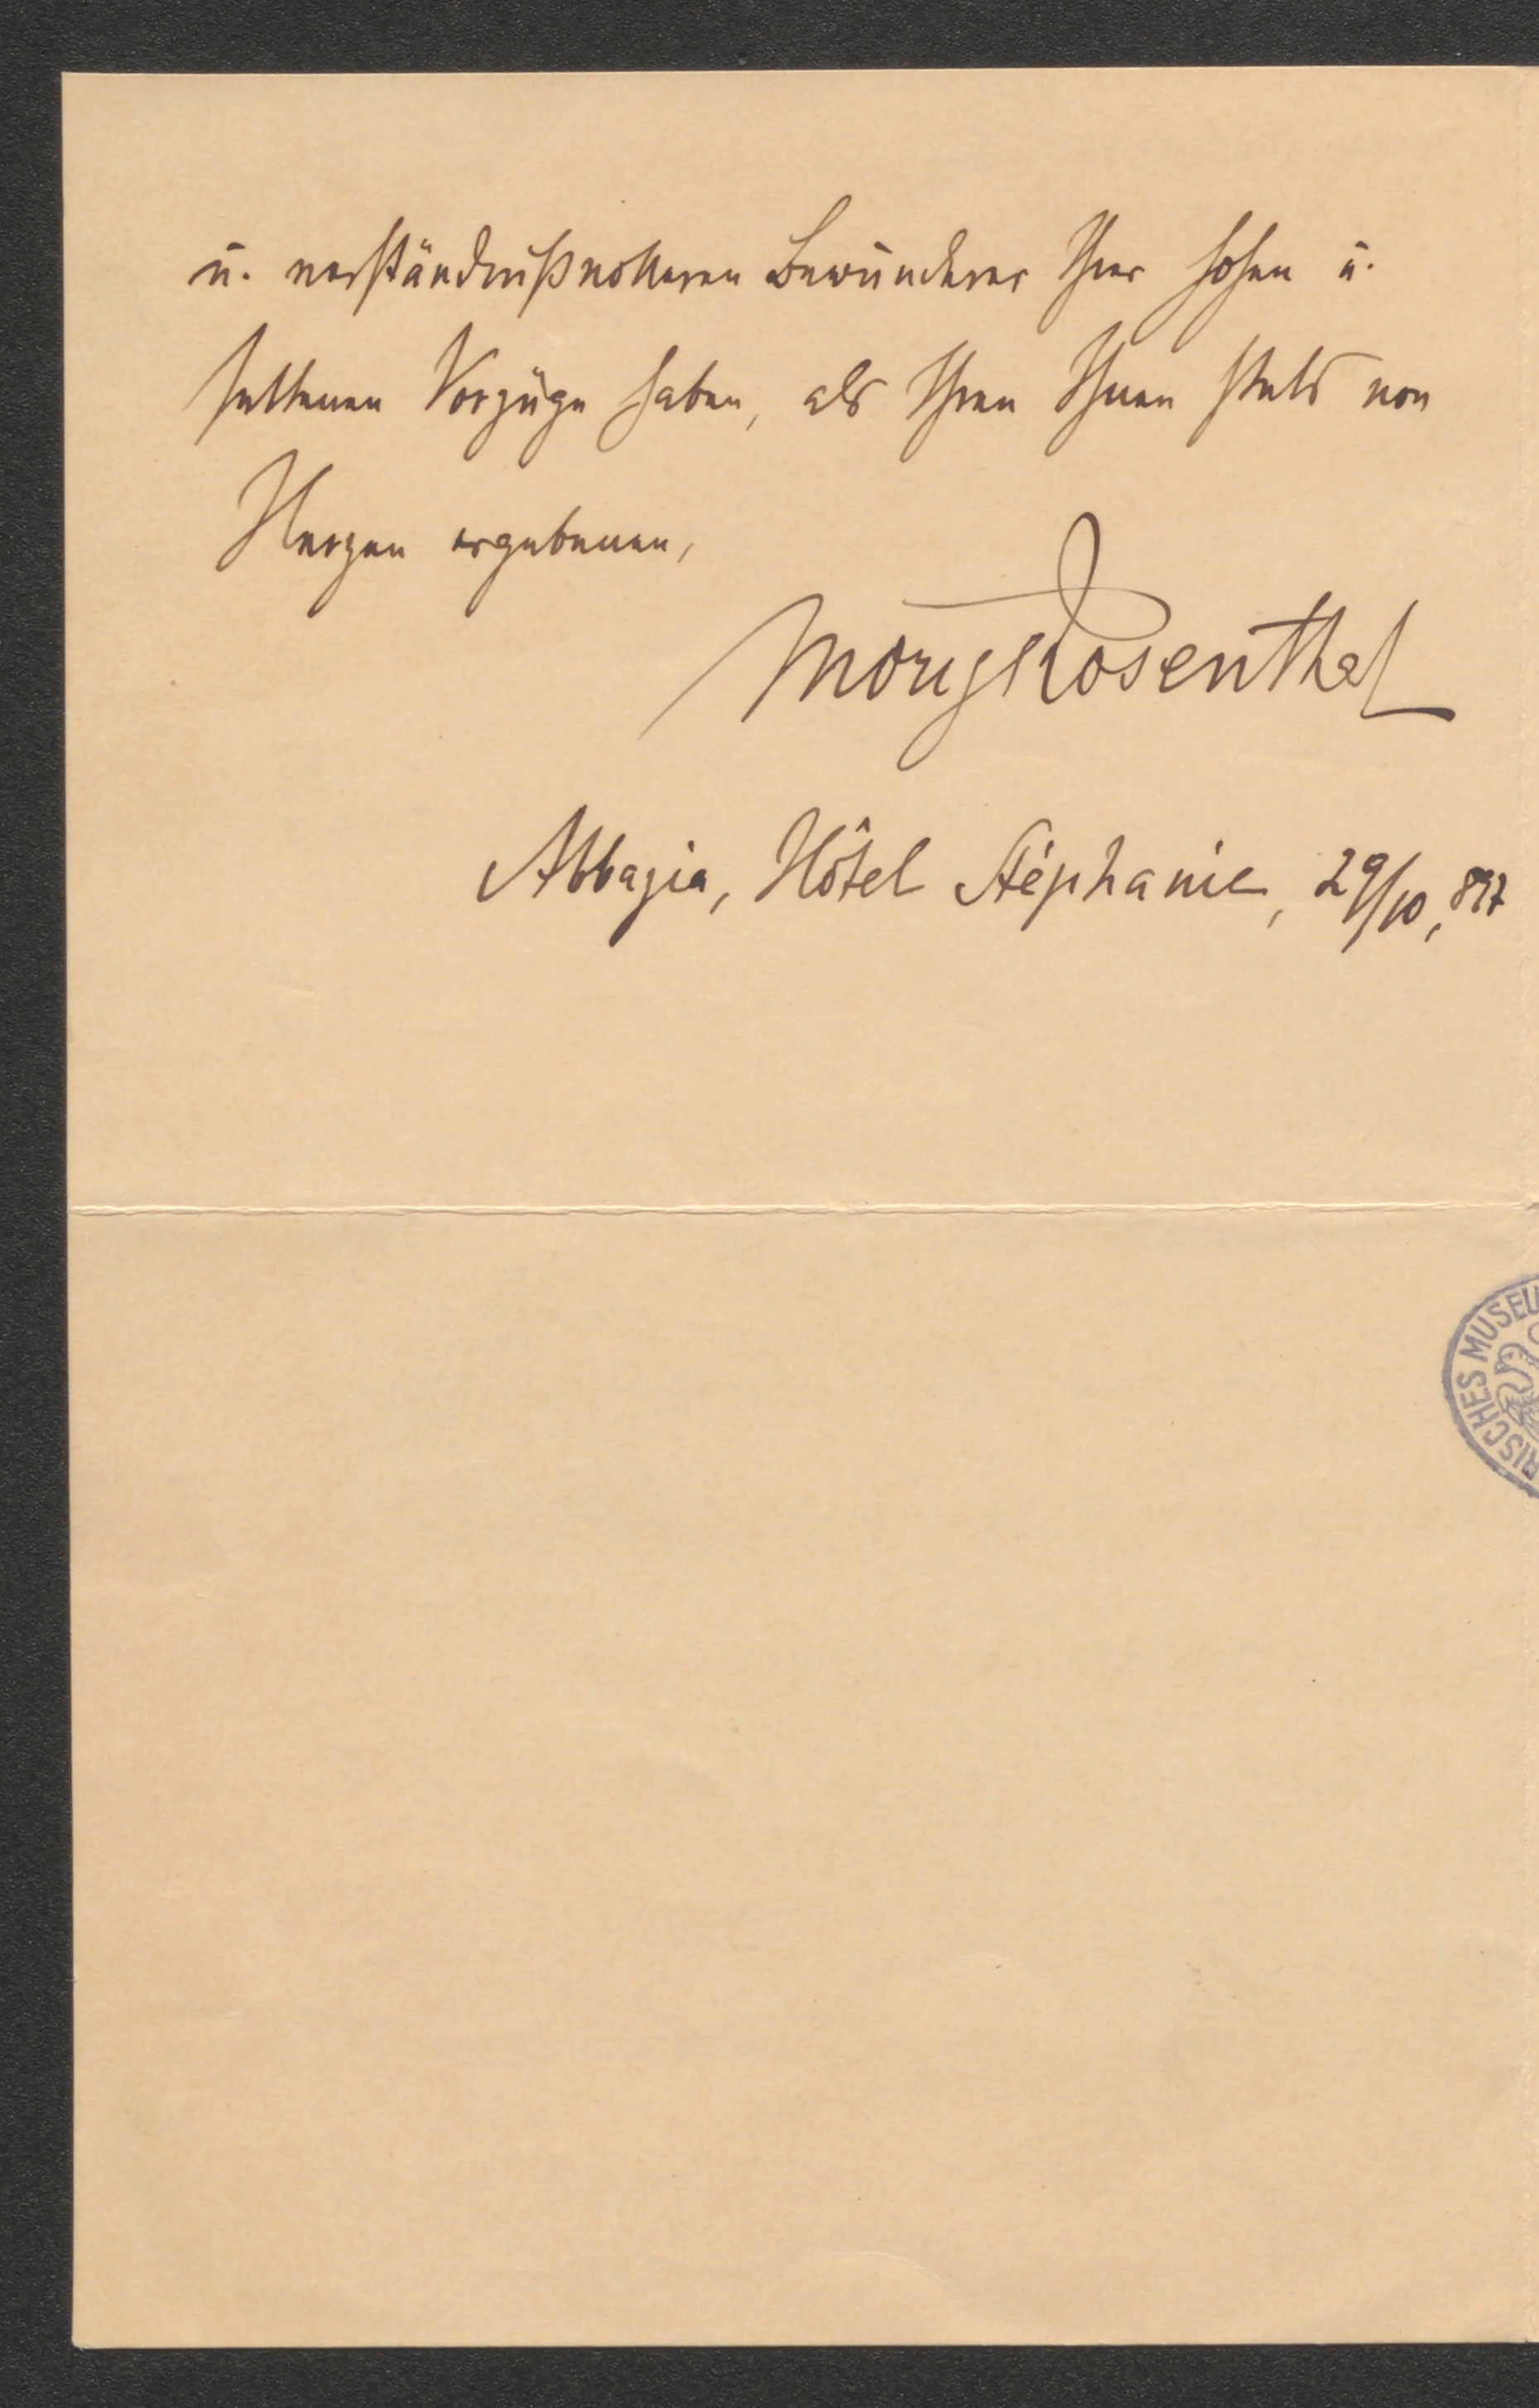 u. verständnißvolleren Bewunderer Ihrer hohen u.
seltenen Vorzüge haben, als Ihren Ihnen stets von
Herzen ergebenen,
Moriz Rosenthal
Abbazia, Hôtel Stéphanie, 29/10, 897
RISCHES MUSEU